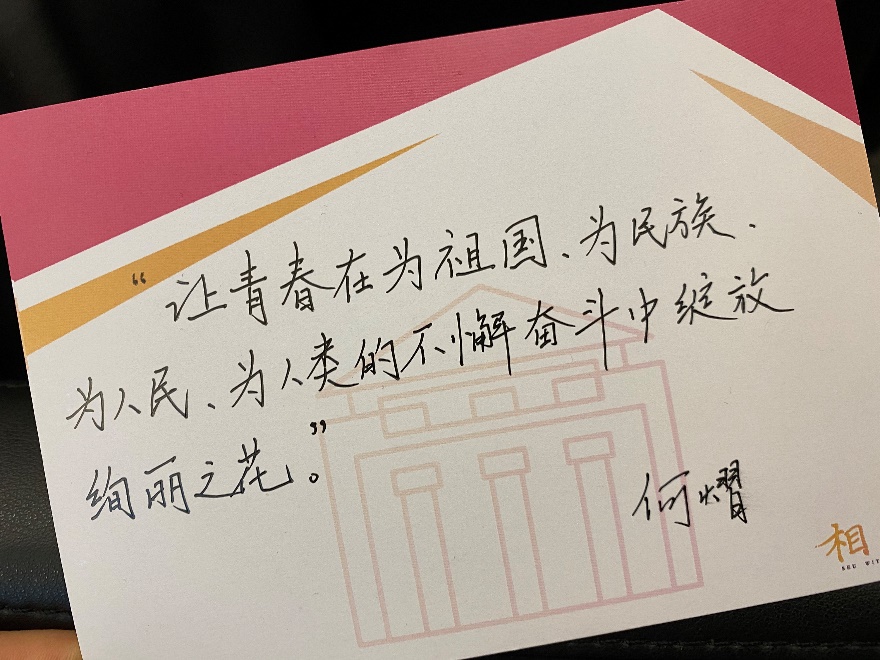 “让青春在为祖国、为民族、
为人民、为人类的不懈奋斗中绽放
绚丽之花”。
何熠
相
SEE WIT